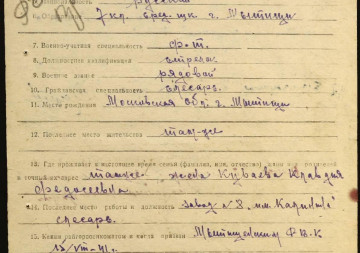 русский
7 кл. сред. шк. г. Мытищи
7. Военно-учетная специальность ф.т.
8. Должностная квалификация стрелок
9. Военное звание рядовой
10. Гражданская специальность слесарь
11. Место рождения Московская обл. г. Мытищи
12. Постоянное место жительства там-же
13. Где проживает в настоящее время семья (фамилия, имя, отчество)
и точный адрес там-же жена Клавдия
Федосеевна
14. Последнее место работы и должность завод № 8 им. Калинина
слесарь
15. Каким райгорвоенкоматом и когда призван Мытищинским Р.В.К
VIII-41г.